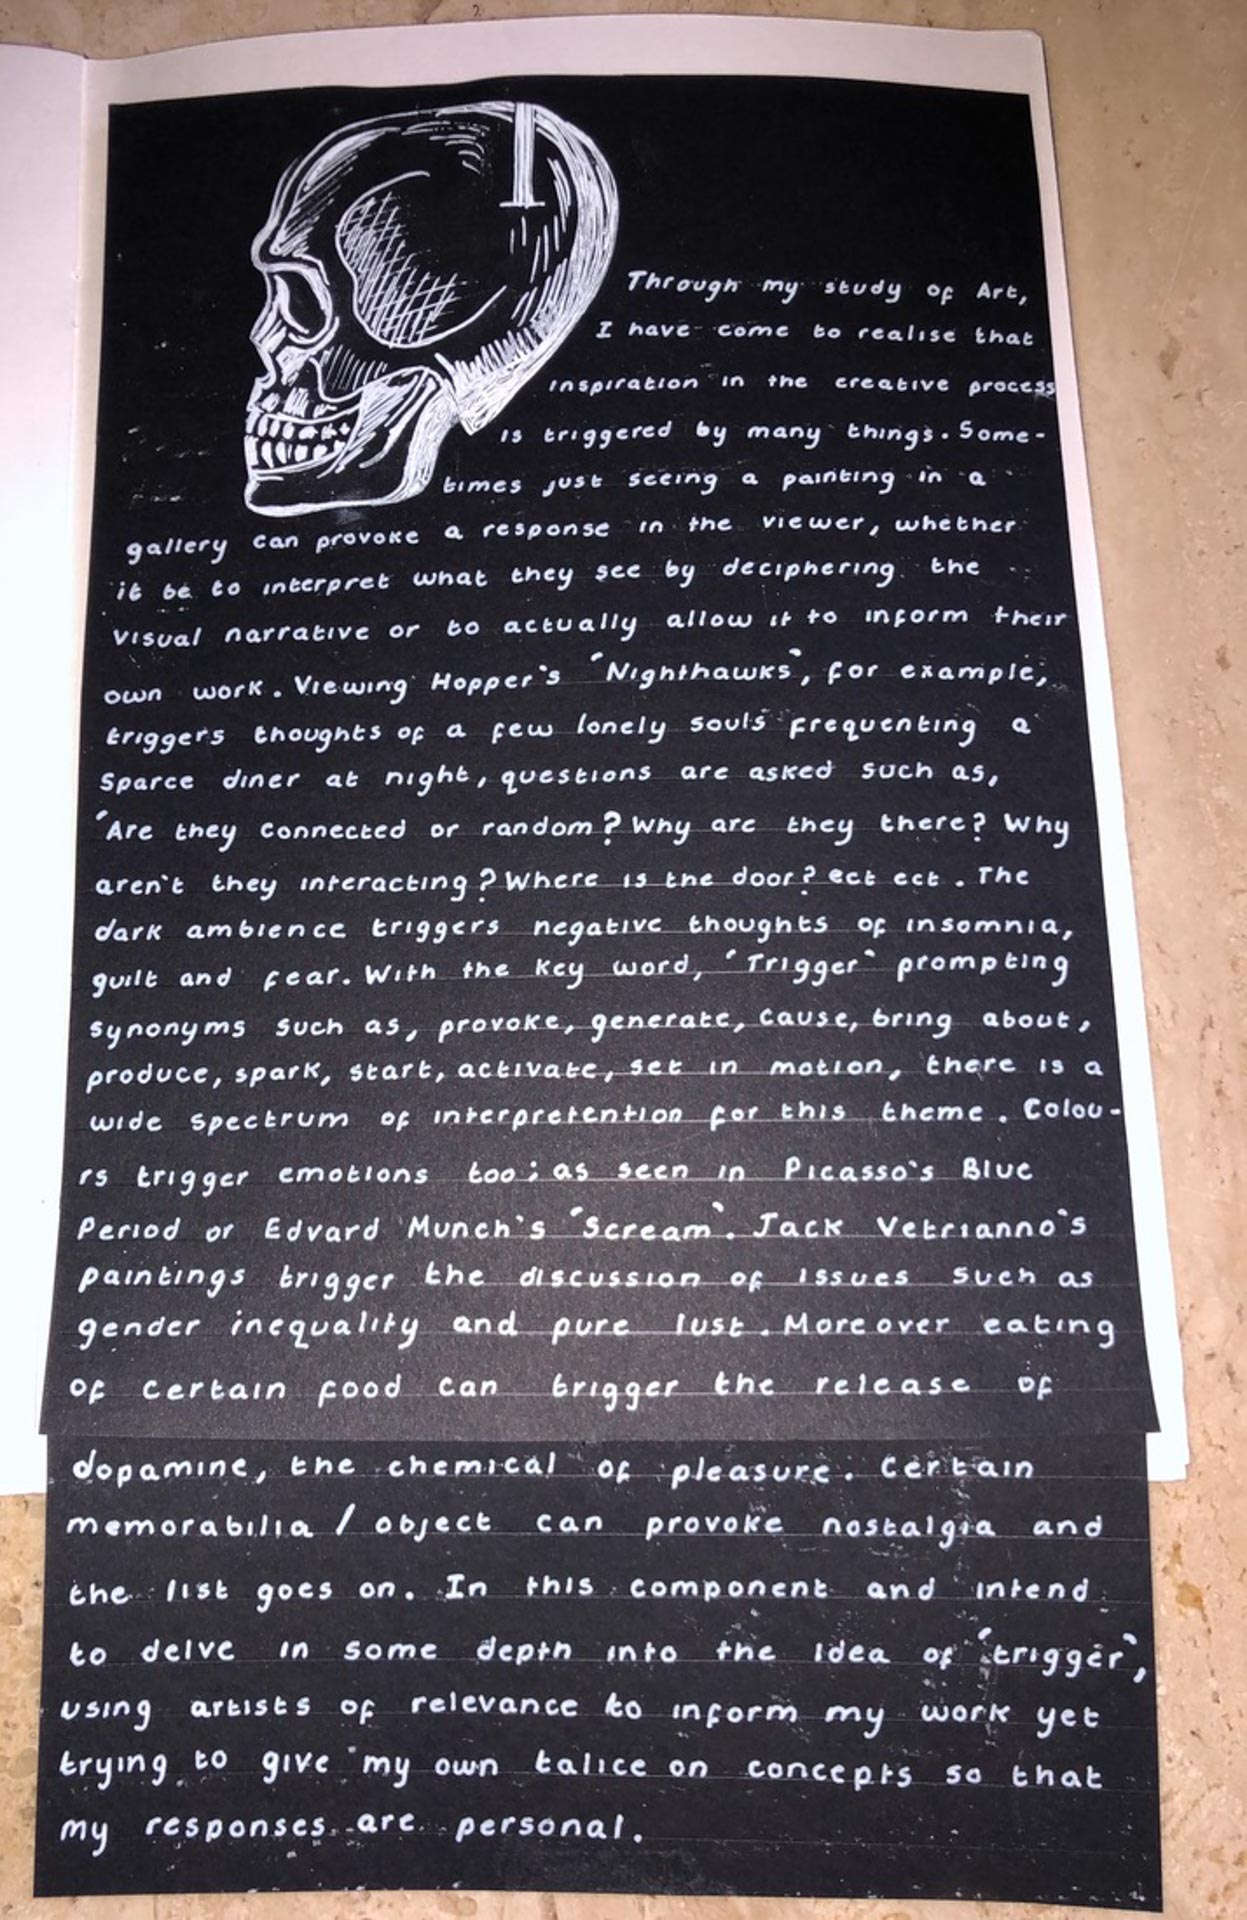 Through my study of Art,
I have come to realise that
inspiration in the creative process
is triggered by many things. Some-
times just seeing a painting in a
gallery can provoke a response in the viewer, whether
it be to interpret what they see by deciphering the
visual narrative or to actually allow it to inform their
own work. Viewing Hopper's 'Nighthawks', for example,
triggers thoughts of a few lonely souls frequenting a
sparce diner at night, questions are asked such as,
'Are they connected or random? Why are they there? Why
aren't they interacting? Where is the door? ect ect. The
dark ambience triggers negative thoughts of insomnia,
guilt and fear. With the key word, 'Trigger' prompting
synonyms such as, provoke, generate, cause, bring about,
produce, spark, start, activate, set in motion, there is a
wide spectrum of interpretention for this theme. Colou-
rs trigger emotions too; as seen in Picasso's Blue
Period or Edvard Munch's 'Scream'. Jack Vetrianno's
paintings trigger the discussion of issues such as
gender inequality and pure lust. Moreover eating
of certain food can trigger the release of
dopamine, the chemical of pleasure. Certain
memorabilia / object can provoke nostalgia and
the list goes on. In this component and intend
to delve in some depth into the idea of 'trigger',
using artists of relevance to inform my work yet
trying to give my own talice on concepts so that
my responses are personal.